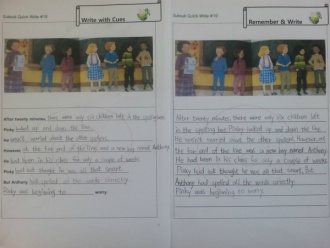 Outlook Quick Write #18
Write with Cues
After twenty minutes, there were only six children left in the spelling bee.
Pinky looked up and down the line.
He wasn't worried about the other spellers.
However, at the far end of the line was a new boy named Anthony.
He had been in his class for only a couple of weeks.
Pinky had not thought he was all that smart.
But Anthony had spelled all the words correctly.
Pinky was beginning to worry.
Outlook Quick Write #19
Remember & Write
After twenty minutes, there were only six children left
in the spelling bee. Pinky looked up and down the line.
He wasn't worried about the other spellers. However, at
the far end of the line was a new boy named Anthony.
He had been in his class for only a couple of weeks.
Pinky had not thought he was all that smart, but
Anthony had spelled all the words correctly.
Pinky was beginning to worry.